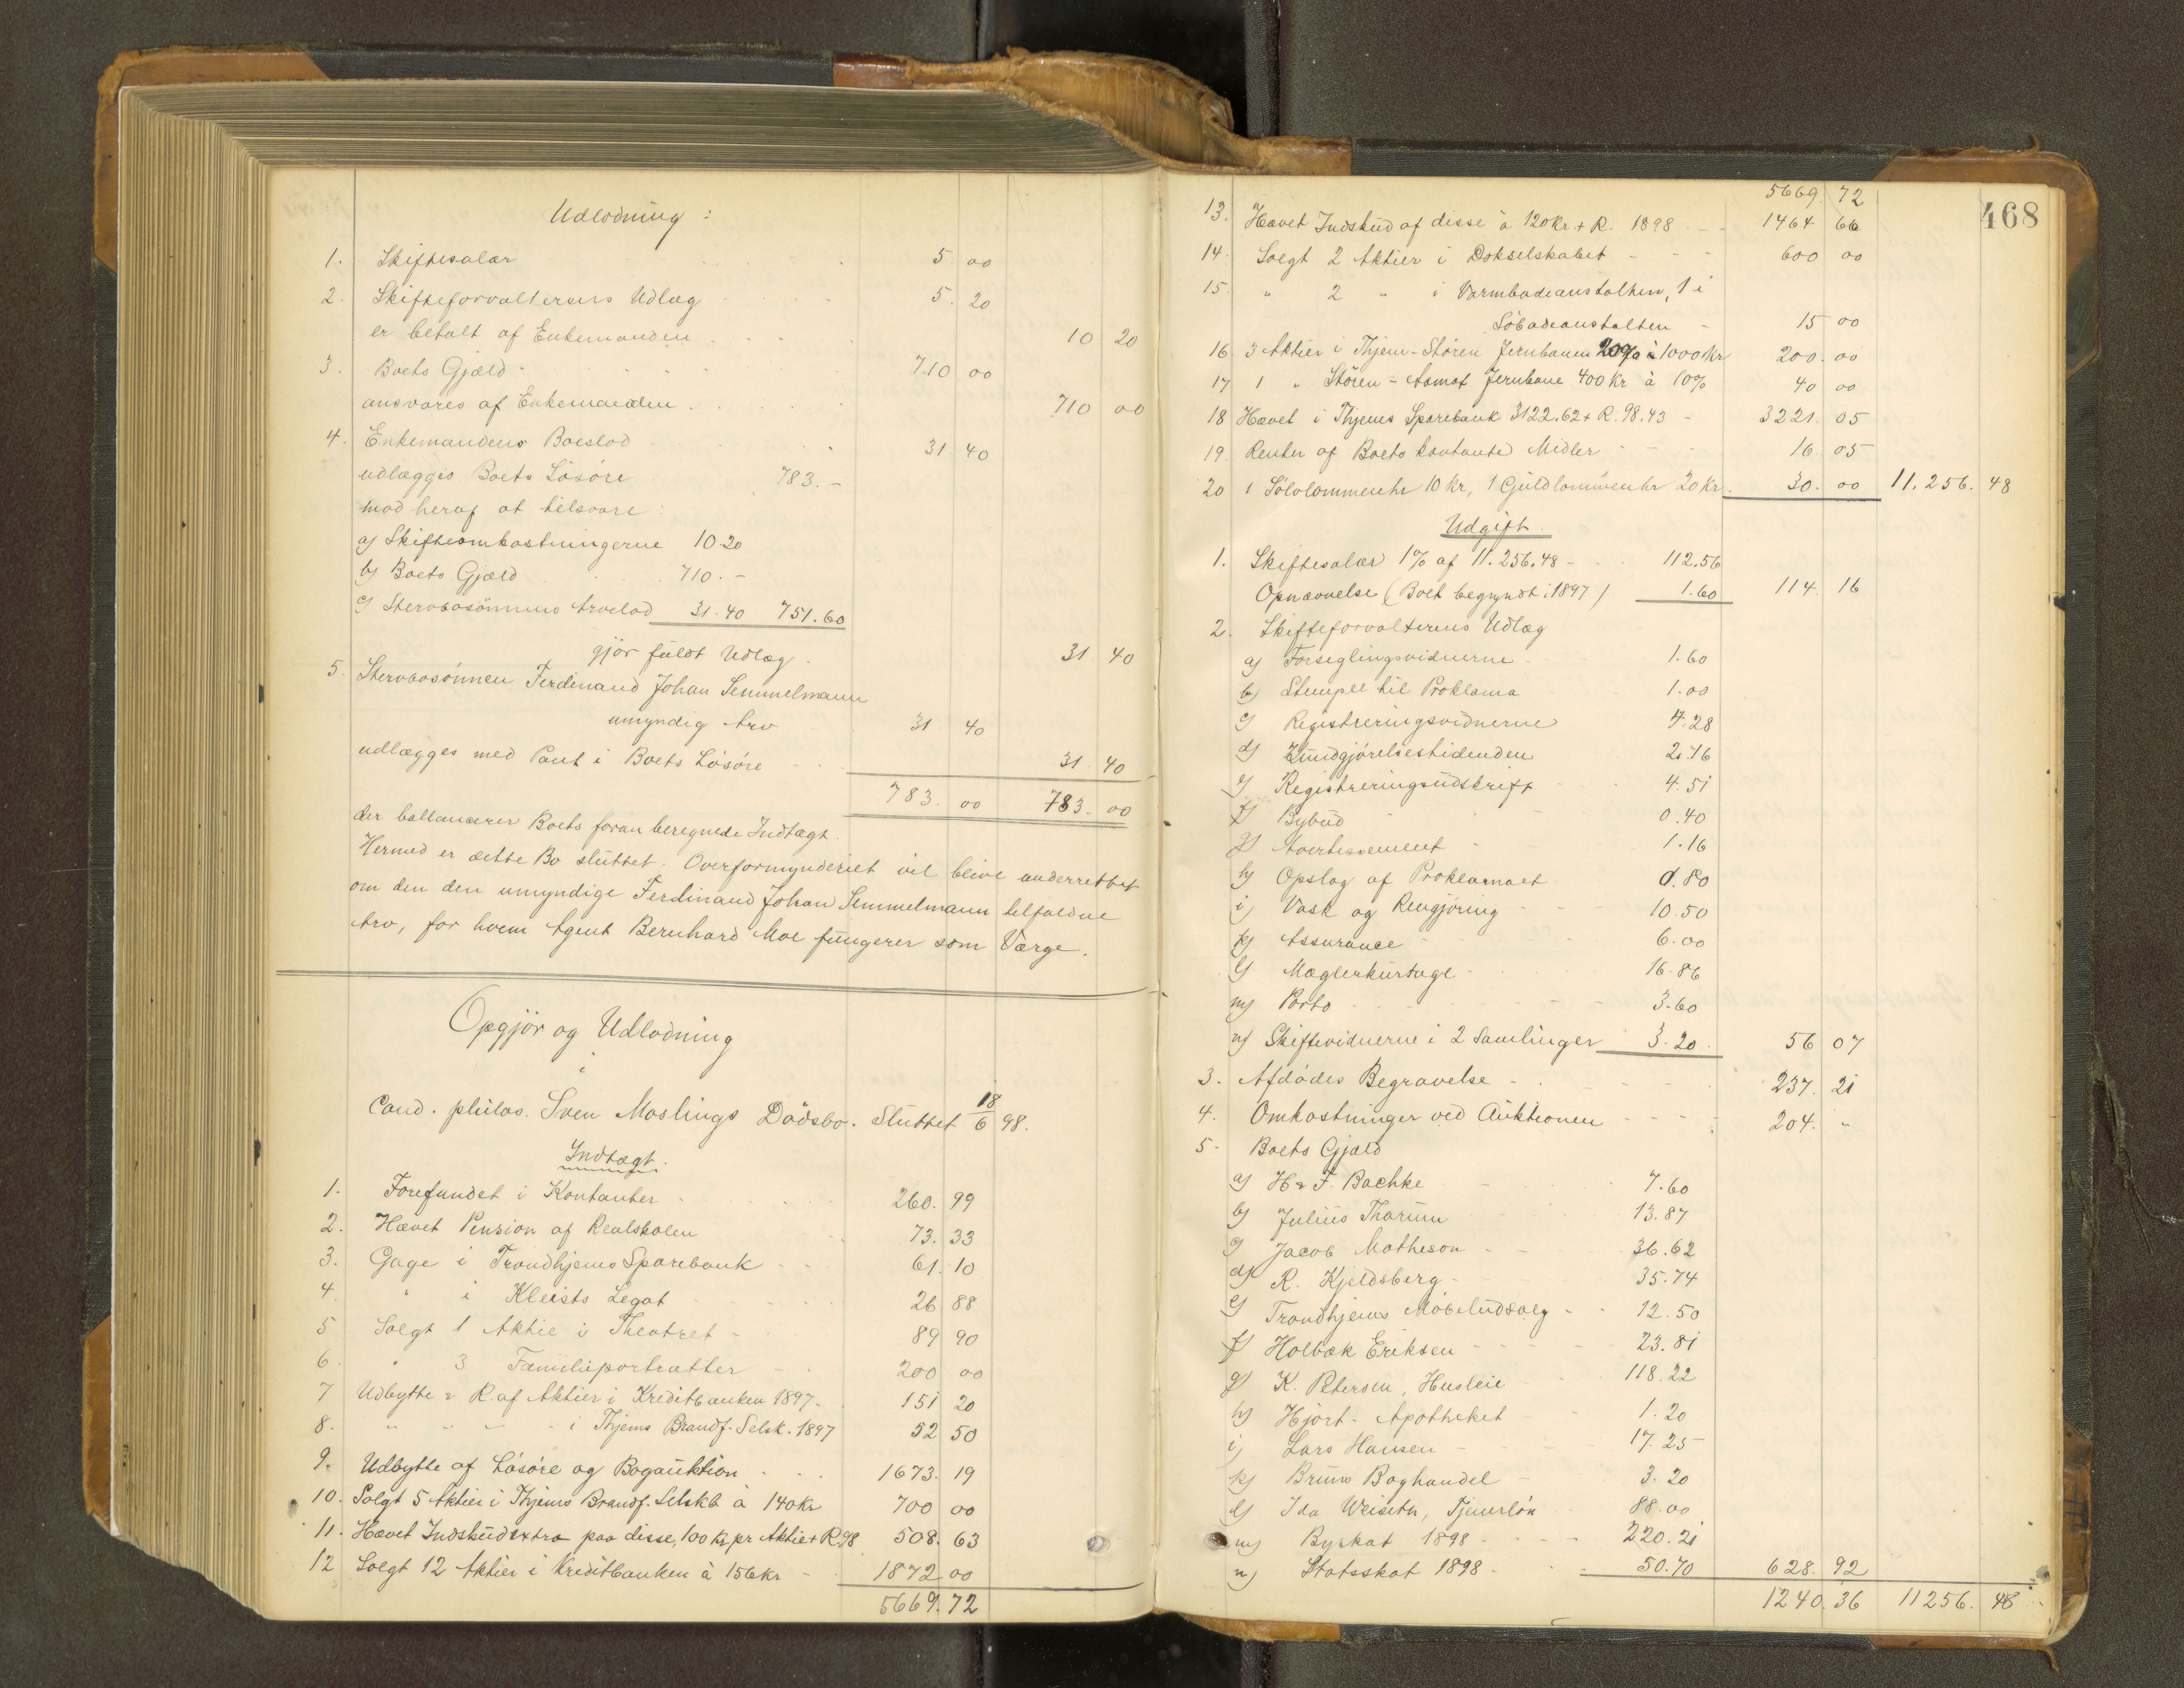 Udlodning:
1. Skiftesalær 5 00
2. Skifteforvalterens Udlæg 5. 20
er betalt af Enkemanden 10 20
3. Boets Gjæld 710 00
ansvares af Enkemanden 710 00
4. Enkemandens Boeslod 31 40
udlægges Boets Løsøre 783.-
mod heraf at tilsvare:
a) Skifteomkostningerne 10.20
b) Boets Gjæld 710.-
c) Stervbosønnens Arvelod 31.40 751.60
gjør fuldt Udlæg 31 40
5. Stervbosønnen Ferdinand Johan Semmelmann
umyndig Arv 31 40
udlægges med Pant i Boets Løsøre 31.40
783. 00 783. 00
der ballancerer Boets foran beregnede Indtægt.
Hermed er dette Bo sluttet. Overformynderiet vil blive underrettet
om den den umyndige Ferdinand Johan Semmelmann tilfaldne
Arv, for hvem Agent Bernhard Moe fungerer som Værge.
Opgjør og Udlodning
i
Cand. philos. Sven Moslings Dødsbo. Sluttet 18/6 98.
Indtægt.
1. Forefundet i Kontanter 260. 99
2. Hævet Pension af Realskolen 73. 33
3. Gage i Trondhjems Sparebank 61. 10
4. " i Kleists Legat 26 88
5 Solgt 1 Aktie i Theatret 89 90
6. " 3 Familieportrætter 200 00
7 Udbytte & R. af Aktier i Kreditbanken 1897. 151 20
8. " - " - i Thjems Brandf. Selsk. 1897 52 50
9. Udbytte af Løsøre og Bogauktion 1673. 19
10. Solgt 5 Aktier i Thjems Brandf. Selskb à 140 Kr 700 00
11. Hævet Indskud extra paa disse, 100 Kr pr Aktie + R. 98 508. 63
12 Solgt 12 Aktier i Kreditbanken à 156 Kr 1872 00
5669. 72
468
5669. 72
13. Hævet Indskud af disse à 120 Kr + R. 1898 1464 66
14. Solgt 2 Aktier i Dokselskabet 600 00
15. " 2 " i Varmbadeanstalten, 1 i
Søbadeanstalten 15 00
16 3 Aktier i Thjem-Støren Jernbanen 20% à 1000 Kr 200. 00
17 1 " Støren-Aamot Jernbane 400 Kr à 10% 40 00
18 Hævet i Thjems Sparebank 3122.62 + R. 98.43 3221. 05
19. Renter af Boets kontante Midler 16. 05
20 1 Sølvlommeuhr 10 Kr, 1 Guldlommeuhr 20 Kr. 30. 00 11.256. 48
Udgift
1. Skiftesalær 1% af 11.256.48 112.56
Opnævnelse (Boet begyndt i 1897) 1.60 114. 16
2. Skifteforvalterens Udlæg
a) Forseglingsvidnerne 1.60
b) Stempel til Proklama 1.00
c) Registreringsvidnerne 4.28
d) Kundgjørelsestidenden 2.16
e) Registreringsudskrift 4.51
f) Bybud 0.40
g) Avertissement 1.16
h) Opslag af Proklamaet 0.80
i) Vask og Rengjøring 10.50
k) Assurance 6.00
l) Mæglerkurtage 16.86
m) Porto 3.60
n) Skiftevidnerne i 2 Samlinger 3.20 56 07
3. Afdødes Begravelse 237. 21
4. Omkostninger ved Auktionen 204. "
5. Boets Gjæld
a) H & F. Bachke 7.60
b) Julius Thorum 13.87
c) Jacob Matheson 36.62
d) R. Kjeldsberg 35.74
e) Trondhjems Møbeludsalg 12.50
f) Holbæk Eriksen 23.81
g) K. Petersen, Husleie 118.22
h) Hjort-Apotheket 1.20
i) Lars Hansen 17.25
k) Bruns Boghandel 3.20
l) Ida Weiseth, Tjenerløn 88.00
m) Byskat 1898 220.21
n) Statsskat 1898 50.70 628. 92
1240. 36 11256. 48